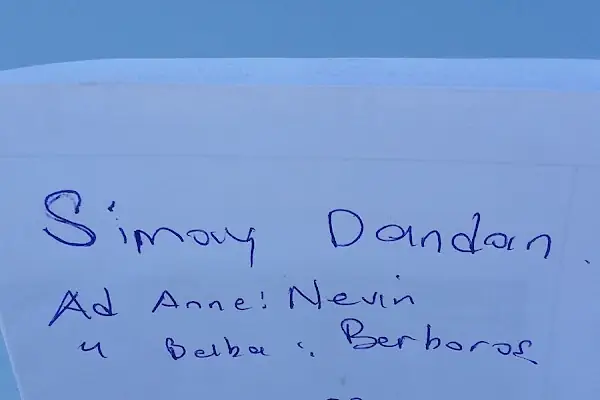 Simay Dandan
Ad Anne: Nevin
" Baba : Barbaros